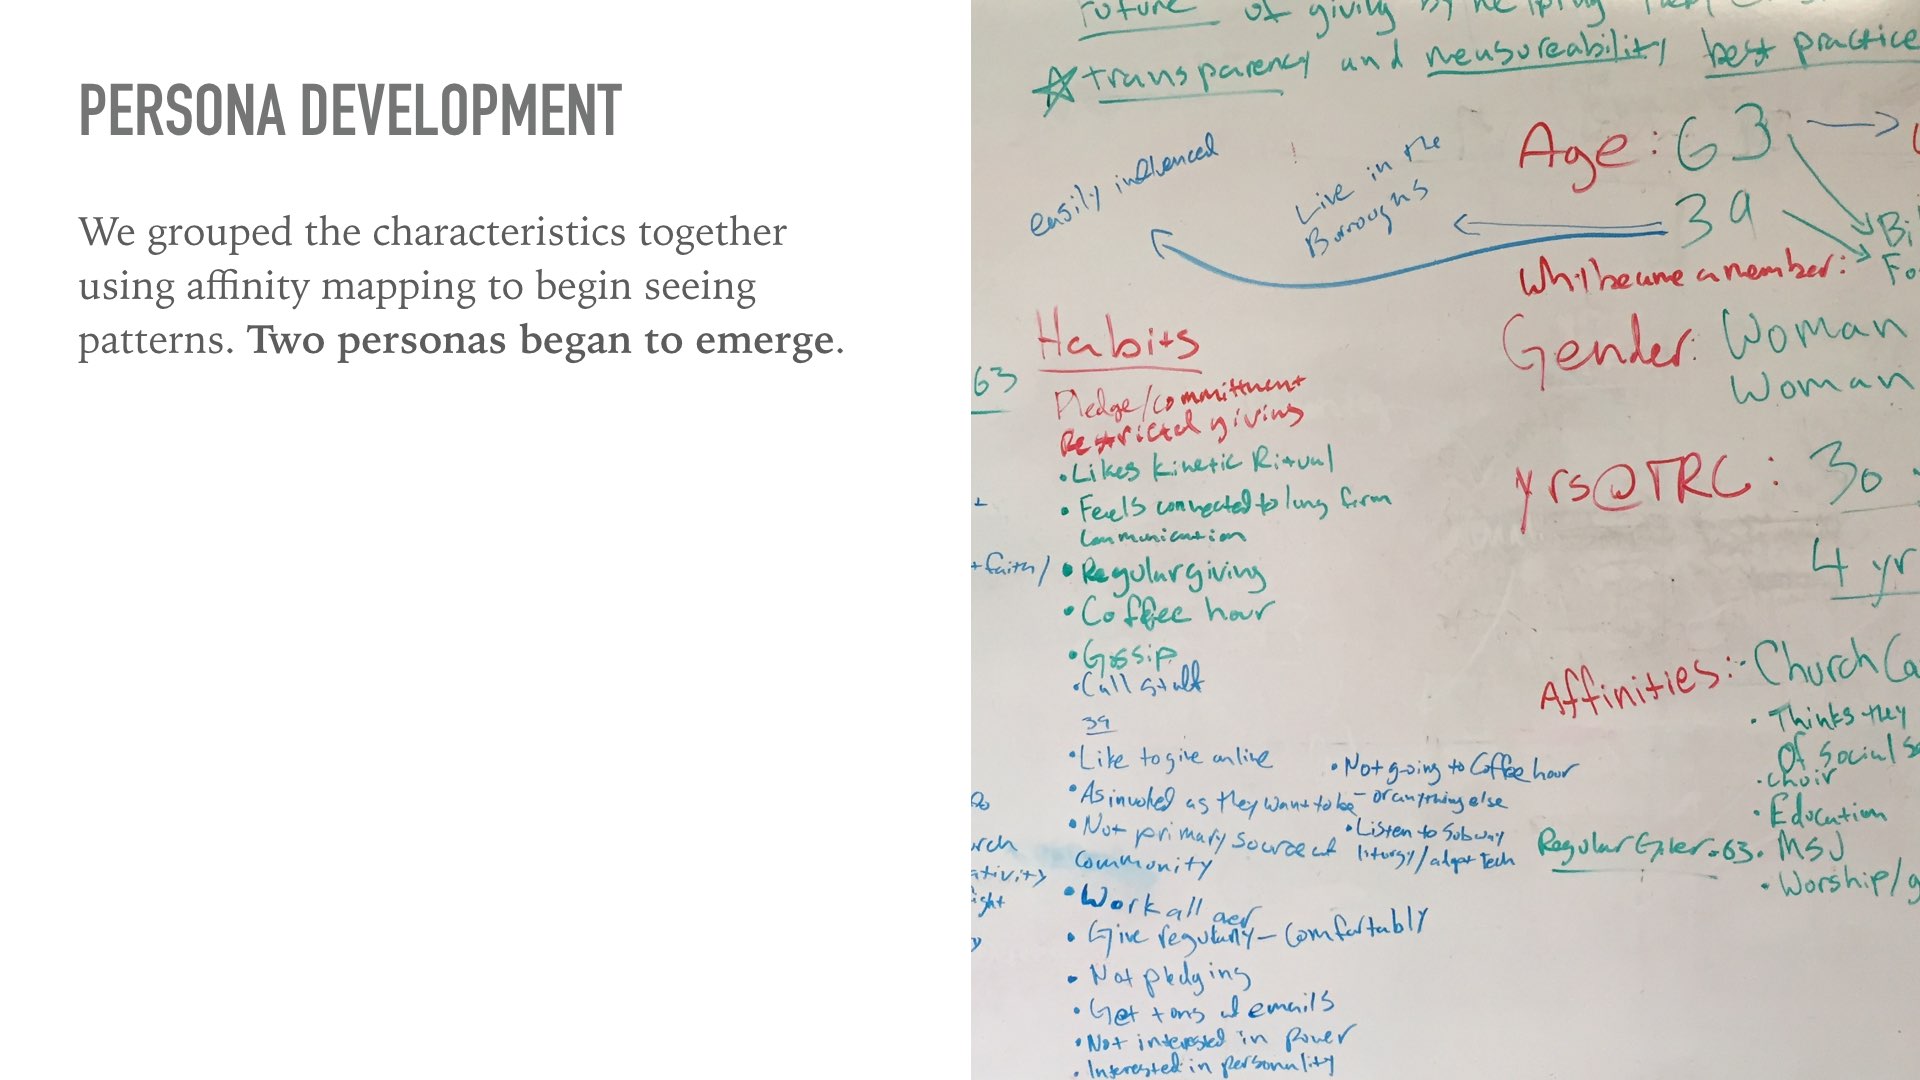 PERSONA DEVELOPMENT
We grouped the characteristics together
using affinity mapping to begin seeing
patterns. Two personas began to emerge.
Future of giving by helping
☆ transparency and measureability best practice
easily influenced
Live in the
Burroughs
Age: 63
39
Bi
Fo
a member:
Gender: Woman
Woman
yrs@TRC: 30
4 yr
Affinities: - Church Ca
• Thinks they
Of Social S
• Choir
• Education
Regular Giver - 63. • MSJ
• Worship/g
63
Habits
Pledge/committment
Restricted giving
• Likes Kinetic Ritual
• Feels connected to long form
communication
+faith/
• Regular giving
• Coffee hour
• Gossip
• Call staff
39
• Like to give online
• As involed as they want to be
• Not primary source of
community
• Not going to Coffee hour
- or anything else
• Listen to Subway
liturgy/adapt tech
• Work all
• Give regularly - Comfortably
• Not pledging
• Get tons of emails
• Not interested in power
• Interested in personality